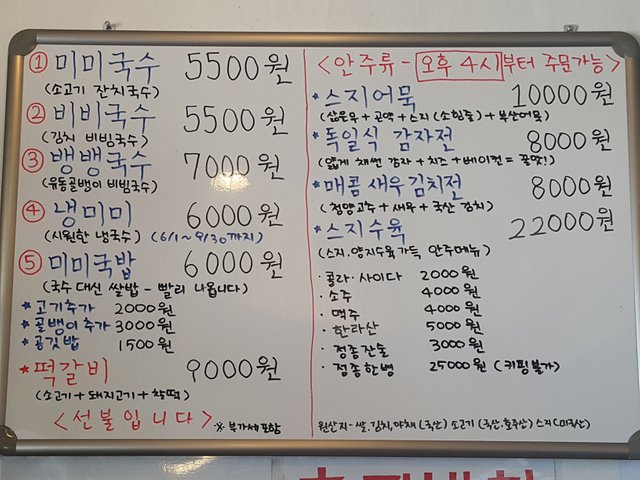 ① 미미국수 5500원
(소고기 잔치국수)
② 비비국수 5500원
(김치 비빔국수)
③ 뱅뱅국수 7000원
(유동골뱅이 비빔국수)
④ 냉미미 6000원
(시원한 냉국수) (6/1~9/30까지)
⑤ 미미국밥 6000원
(국수 대신 쌀밥 - 빨리 나옵니다)
* 고기추가 2000원
* 골뱅이 추가 3000원
* 공깃밥 1500원
* 떡갈비 9000원
(소고기 + 돼지고기 + 찹떡)
<선불입니다> ※ 부가세포함
<안주류 - 오후 4시부터 주문가능>
* 스지어묵 10000원
(삶은무 + 곤약 + 스지 (소힘줄) + 부산어묵)
* 독일식 감자전 8000원
(얇게 채썬 감자 + 치즈 + 베이컨 = 꿀맛!)
* 매콤새우김치전 8000원
(청양고추 + 새우 + 국산 김치)
* 스지수육 22000원
(스지, 양지수육 가득 안주메뉴)
· 콜라 · 사이다 2000원
· 소주 4000원
· 맥주 4000원
· 한라산 5000원
· 정종잔술 3000원
· 정종한병 25000원 (키핑불가)
원산지 - 쌀, 김치, 야채 (국산) 소고기 (국산, 호주산) 스지 (미국산)